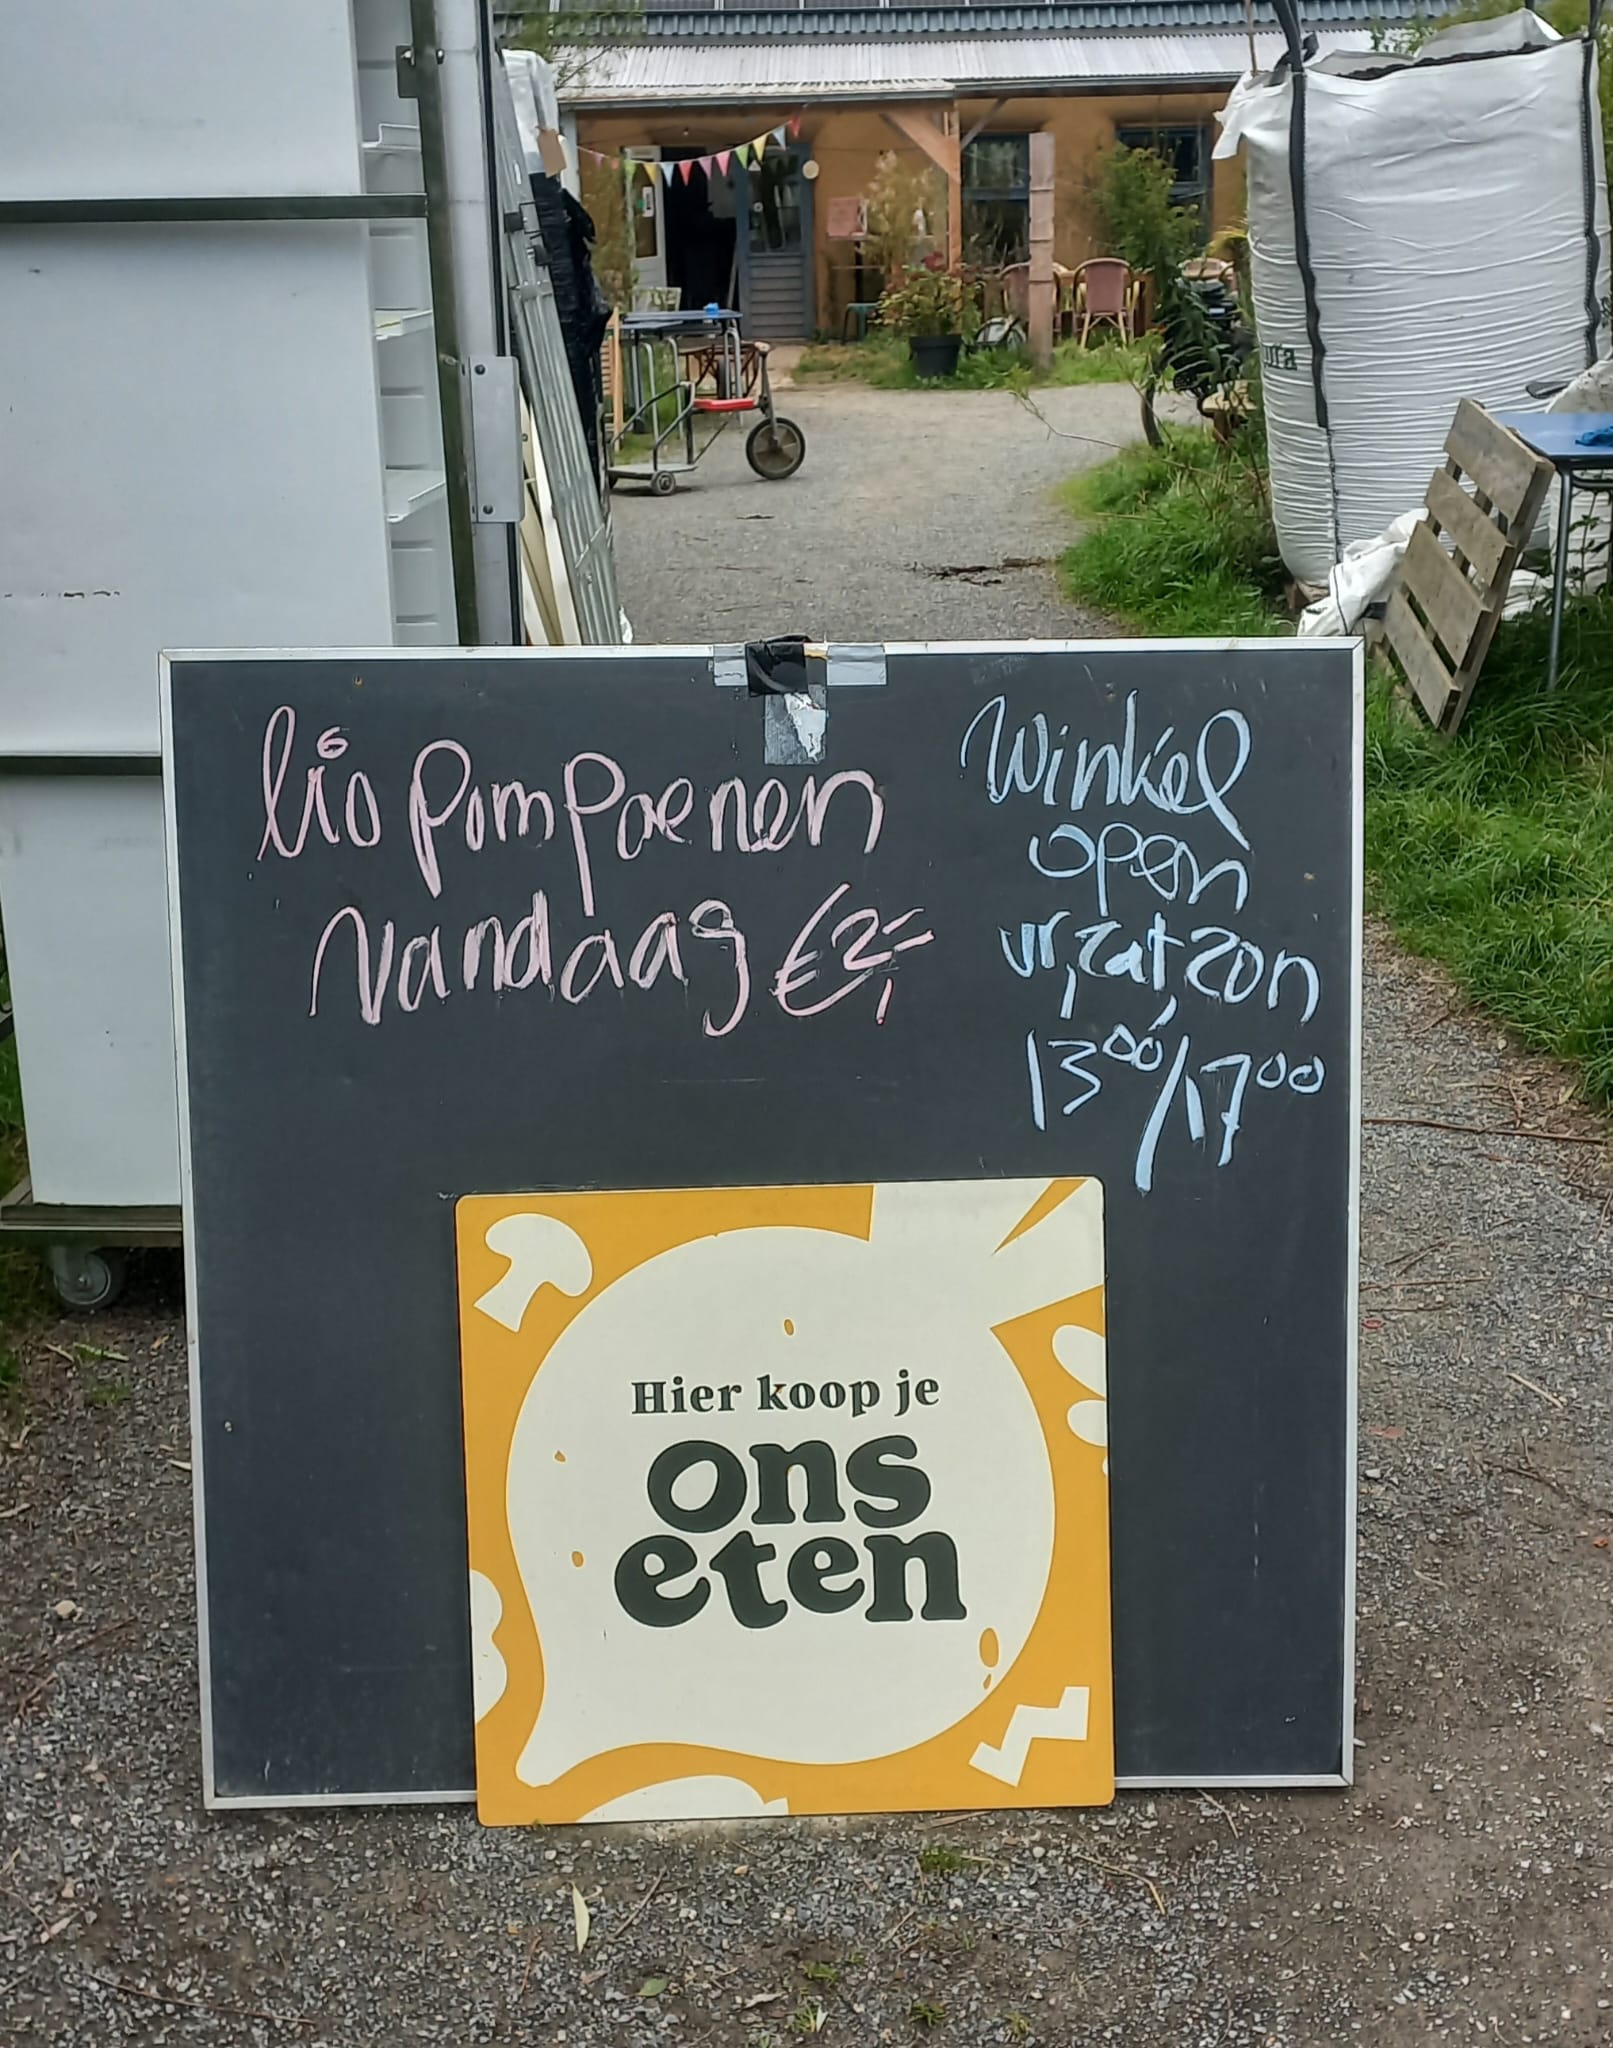 bio pompoenen
vandaag €2,-
winkel
open
vr, zat, zon
13⁰⁰/17⁰⁰
Hier koop je
ons
eten